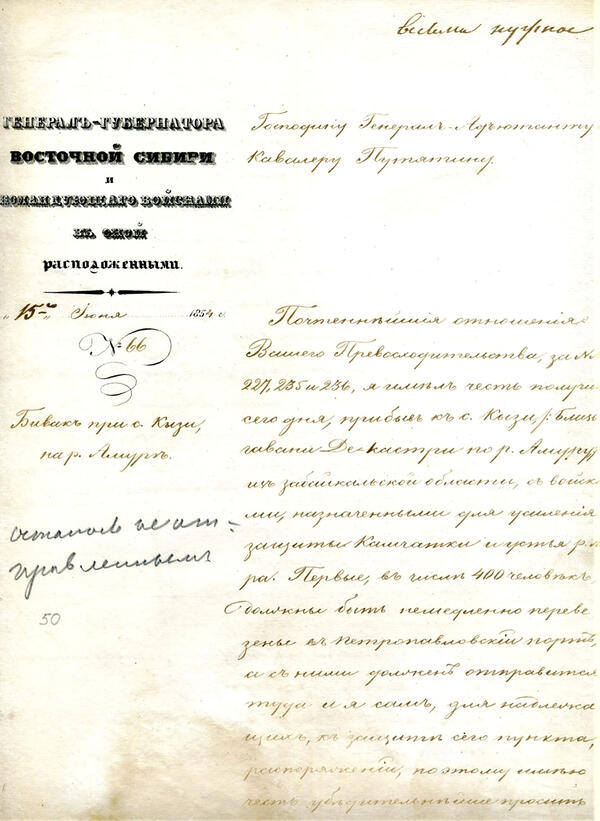 весьма нужное
ГЕНЕРАЛЪ-ГУБЕРНАТОРА
ВОСТОЧНОЙ СИБИРИ
И
КОМАНДУЮЩАГО ВОЙСКАМИ
ВЪ ОНОЙ
расположенными.
"15го" Іюня 1854 г.
№ 66
Бивакъ при с. Кызи,
на р. Амурѣ.
Остался не от=
правленнымъ
50
Господину Генералъ-Адъютанту
Кавалеру Путятину.
Почтеннѣйшія отношенія
Вашего Превосходительства, за №
227, 235 и 236, я имѣлъ честь получи
сего дня, прибывъ къ с. Кызи, /: Близь
гавани Де-Кастри по р. Амуру
изъ забайкальской области, съ войска
ми, назначенными для усиленія
защиты Камчатки и устья р.
ра. Первые, въ числѣ 400 человѣкъ,
должны быть немедленно переве
зены въ Петропавловскій портъ,
а съ ними долженъ отправится
туда и я самъ, для надлежа
щихъ, къ защитѣ сего пункта,
распоряженій, поэтому имѣю
честь убѣдительнѣйше просить